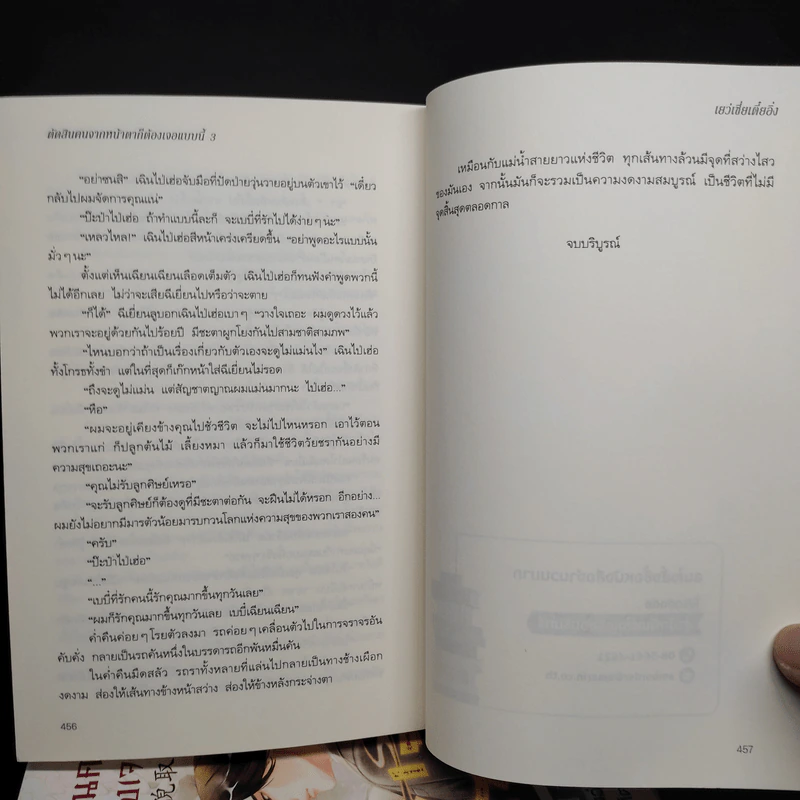 ตัดสินคนจากหน้าตาก็ต้องเจอแบบนี้ 3
“อย่าซนสิ” เฉินไป่เฮ่อจับมือที่ปัดป่ายวุ่นวายอยู่บนตัวเขาไว้ “เดี๋ยว
กลับไปผมจัดการคุณแน่”
“ป๊ะป๋าไป่เฮ่อ ถ้าทำแบบนี้ละก็ จะเบบี๋ที่รักไปได้ง่ายๆ นะ”
“เหลวไหล!” เฉินไป่เฮ่อสีหน้าเคร่งเครียดขึ้น “อย่าพูดอะไรแบบนั้น
มั่วๆ นะ”
ตั้งแต่เห็นเฉียนเฉียนเลือดเต็มตัว เฉินไป่เฮ่อก็ทนฟังคำพูดพวกนี้
ไม่ได้อีกเลย ไม่ว่าจะเสียฉีเยี่ยนไปหรือว่าจะตาย
“ก็ได้” ฉีเยี่ยนลูบอกเฉินไป่เฮ่อเบาๆ “วางใจเถอะ ผมดูดวงไว้แล้ว
พวกเราจะอยู่ด้วยกันไปร้อยปี มีชะตาผูกโยงกันไปสามชาติสามภพ”
“ไหนบอกว่าถ้าเป็นเรื่องเกี่ยวกับตัวเองจะดูไม่แม่นไง” เฉินไป่เฮ่อ
ทั้งโกรธทั้งขำ แต่ในที่สุดก็เก๊กหน้าใส่ฉีเยี่ยนไม่รอด
“ถึงจะดูไม่แม่น แต่สัญชาตญาณผมแม่นมากนะ ไป่เฮ่อ...”
“หือ”
“ผมจะอยู่เคียงข้างคุณไปชั่วชีวิต จะไม่ไปไหนหรอก เอาไว้ตอน
พวกเราแก่ ก็ปลูกต้นไม้ เลี้ยงหมา แล้วก็มาใช้ชีวิตวัยชรากันอย่างมี
ความสุขเถอะนะ”
“คุณไม่รับลูกศิษย์เหรอ”
“จะรับลูกศิษย์ก็ต้องดูที่มีชะตาต่อกัน จะฝืนไม่ได้หรอก อีกอย่าง...
ผมยังไม่อยากมีมารตัวน้อยมารบกวนโลกแห่งความสุขของพวกเราสองคน”
“ครับ”
“ป๊ะป๋าไป่เฮ่อ”
“...”
“เบบี๋ที่รักคนนี้รักคุณมากขึ้นทุกวันเลย”
“ผมก็รักคุณมากขึ้นทุกวันเลย เบบี๋เฉียนเฉียน”
ค่ำคืนค่อยๆ โรยตัวลงมา รถค่อยๆ เคลื่อนตัวไปในการจราจรอัน
คับคั่ง กลายเป็นรถคันหนึ่งในบรรดารถอีกพันหมื่นคัน
ในค่ำคืนมืดสลัว รถราทั้งหลายที่แล่นไปกลายเป็นทางช้างเผือก
งดงาม ส่องให้เส้นทางข้างหน้าสว่าง ส่องให้ข้างหลังกระจ่างตา
456
เยว่เซี่ยเตี๋ยอิ่ง
เหมือนกับแม่น้ำสายยาวแห่งชีวิต ทุกเส้นทางล้วนมีจุดที่สว่างไสว
ของมันเอง จากนั้นมันก็จะรวมเป็นความงดงามสมบูรณ์ เป็นชีวิตที่ไม่มี
จุดสิ้นสุดตลอดกาล
จบบริบูรณ์
457